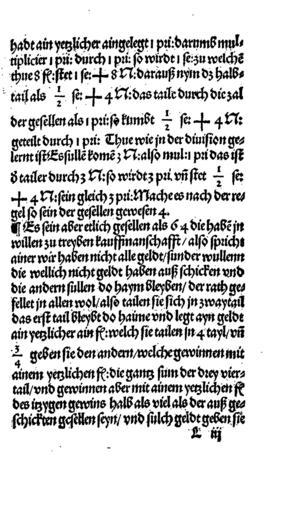 hadt ain yetzlicher aingelegt 1 pri: darumb mul-
tiplicier 1 pri: durch 1 pri: so wirdt 1 se: zu welchē
thue 8 fl: stet 1 se: + 8 N: darauß nym dz halb-
tail als 1/2 se: + 4 N: das taile durch die zal
der gesellen als 1 pri: so kumbt 1/2 se: + 4 N:
geteilt durch 1 pri: Thue wie in der division ge-
lernt ist Es süllē komē 3 N: also mul: 1 pri das ist
d tailer durch 3 N: so wirdt 3 pri. vn̄ stet 1/2 se:
+ 4 N: sein gleich 3 pri: Mache es nach der re-
gel so sein der gesellen gewesen 4.
¶ Es sein aber etlich gesellen als 64 die habē in
willen zu treyben kauffmanschafft / also spricht
ainer wir haben nicht alle geldt / sunder wullenn
die wellich nicht geldt haben auß schicken vnd
die andern süllen do haym bleyben / der rath ge-
fellet in allen wol / also tailen sie sich in zway tail
das erst tail bleybt do haime vnd legt ayn geldt
ain yetzlicher ain fl: welch sie tailen in 4 tayl / vn̄
3/4 geben sie den andern / welche gewinnen mit
ainem yetzlichen fl: die gantz sum der drey vier-
tail / vnd gewinnen aber mit ainem yetzlichen fl
des itzygen gewins halb als viel als der auß ge-
schickten gesellen seyn / vnd sulch geldt geben sie
L iij